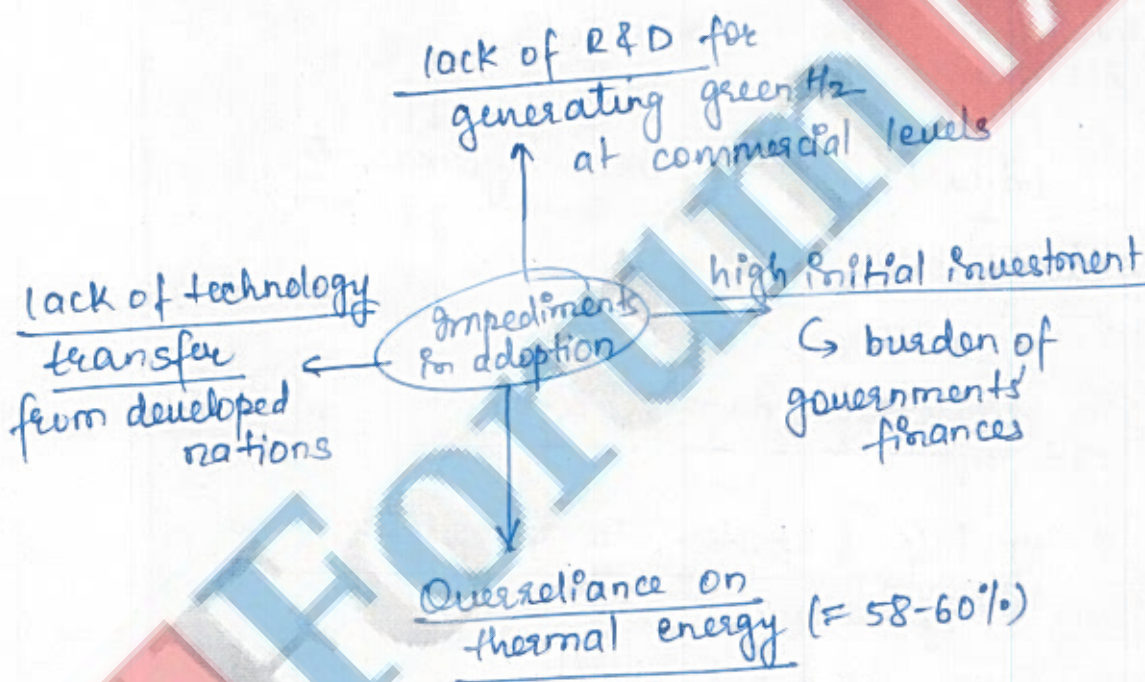 lack of R&D for
generating green H2
at commercial levels
lack of technology
transfer
from developed
nations
Impediments
in adoption
high initial investment
↳ burden of
governments'
finances
Overreliance on
thermal energy (≈ 58-60%)
Forum